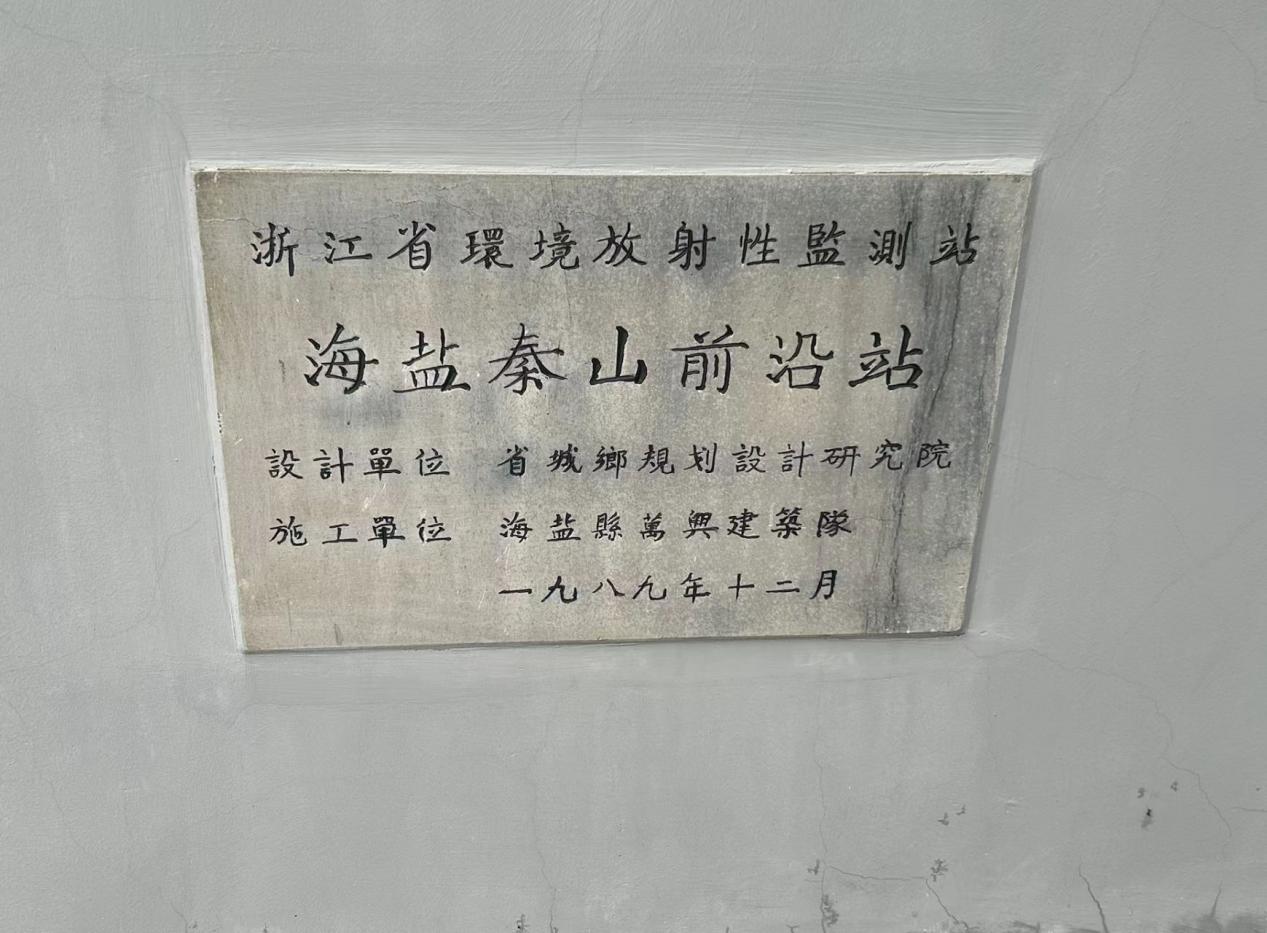 浙江省環境放射性監測站
海盐秦山前沿站
設計單位 省城鄉規划設計研究院
施工單位 海盐縣萬興建築隊
一九八九年十二月